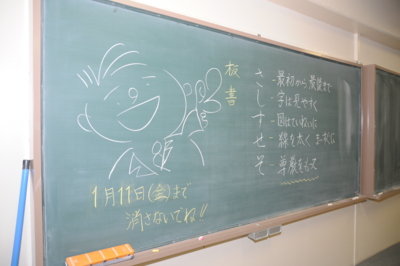 板書
さ-最初から最後まで
し-字は見やすく
す-図はていねいに
せ-線を太く まっすぐに
そ-尊敬をもって
1月11日(金)まで
消さないでね!!